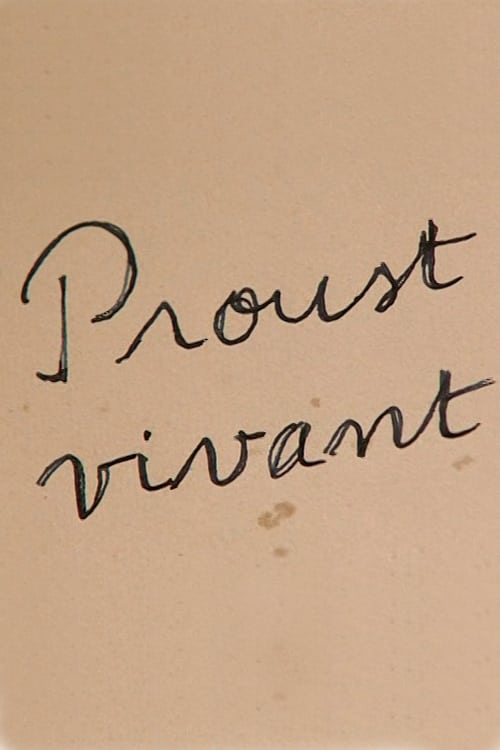 Proust
vivant